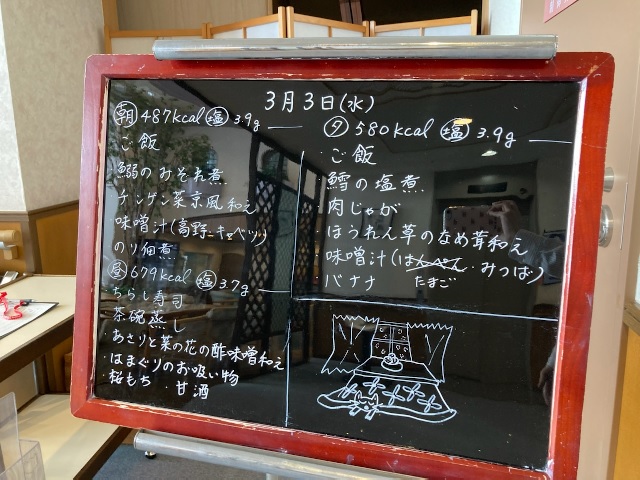 3月3日(水)
朝 487kcal 塩 3.9g
ご飯
鰯のみぞれ煮
チンゲン菜京風和え
味噌汁(高野・キャベツ)
のり佃煮
昼 679kcal 塩 3.7g
ちらし寿司
茶碗蒸し
あさりと菜の花の酢味噌和え
・はまぐりのお吸い物
・桜もち 甘酒
夕 580kcal 塩 3.9g
・ご飯
・鱈の塩煮
・肉じゃが
・ほうれん草のなめ茸和え
・味噌汁(はんぺん・みつば)
たまご
バナナ